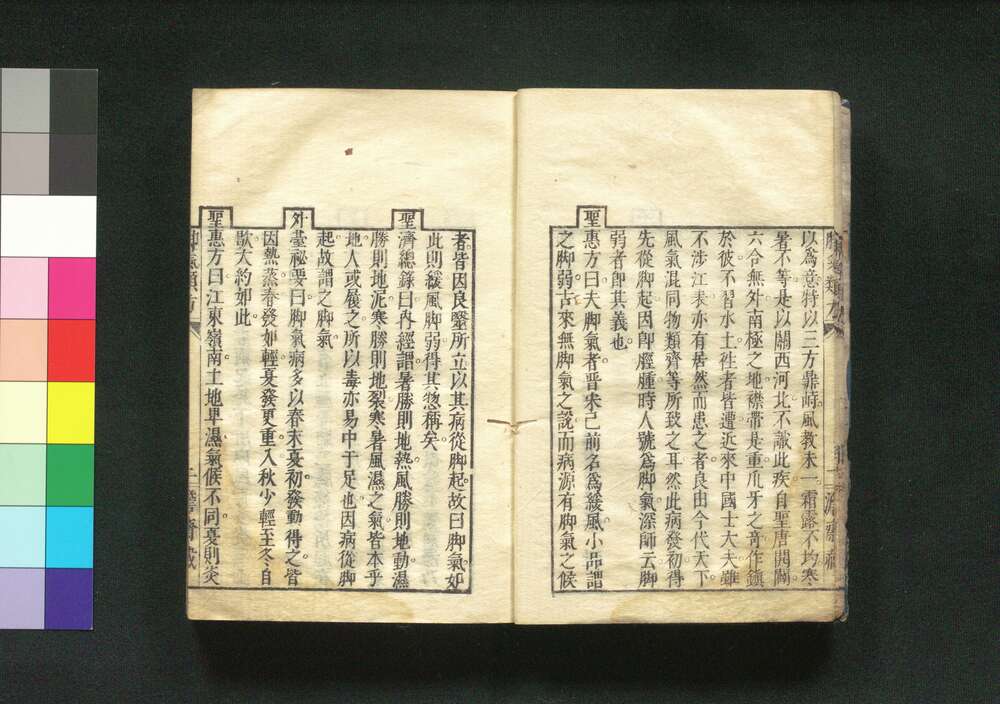 以爲意特以三方鼎峙風教未一霜露不均寒
暑不等是以關西河北不識此疾自聖唐開闢
六合無外南極之地襟帶是重爪牙之寄作鎭
於彼不習水土往者皆遭近來中國士大夫雖
不涉江表亦有居然而患之者良由今代天下
風氣混同物類齊等所致之耳然此病發初得
先從脚起因卽脛腫時人號爲脚氣深師云脚
弱者卽其義也
聖惠方曰夫脚氣者晋宋已前名爲緩風小品謂
之脚弱古來無脚氣之說而病源有脚氣之候
者皆因良醫所立以其病從脚起故曰脚氣如
此則緩風脚弱得其惣稱矣
聖濟總錄曰內經謂暑勝則地熱風勝則地動濕
勝則地泥寒勝則地裂寒暑風濕之氣皆本乎
地人或履之所以毒亦易中于足也因病從脚
起故謂之脚氣
外臺祕要曰脚氣病多以春末夏初發動得之皆
因熱蒸春發如輕夏發更重入秋少輕至冬自
歇大約如此
聖惠方曰江東嶺南土地卑濕氣候不同夏則炎
脚氣類方